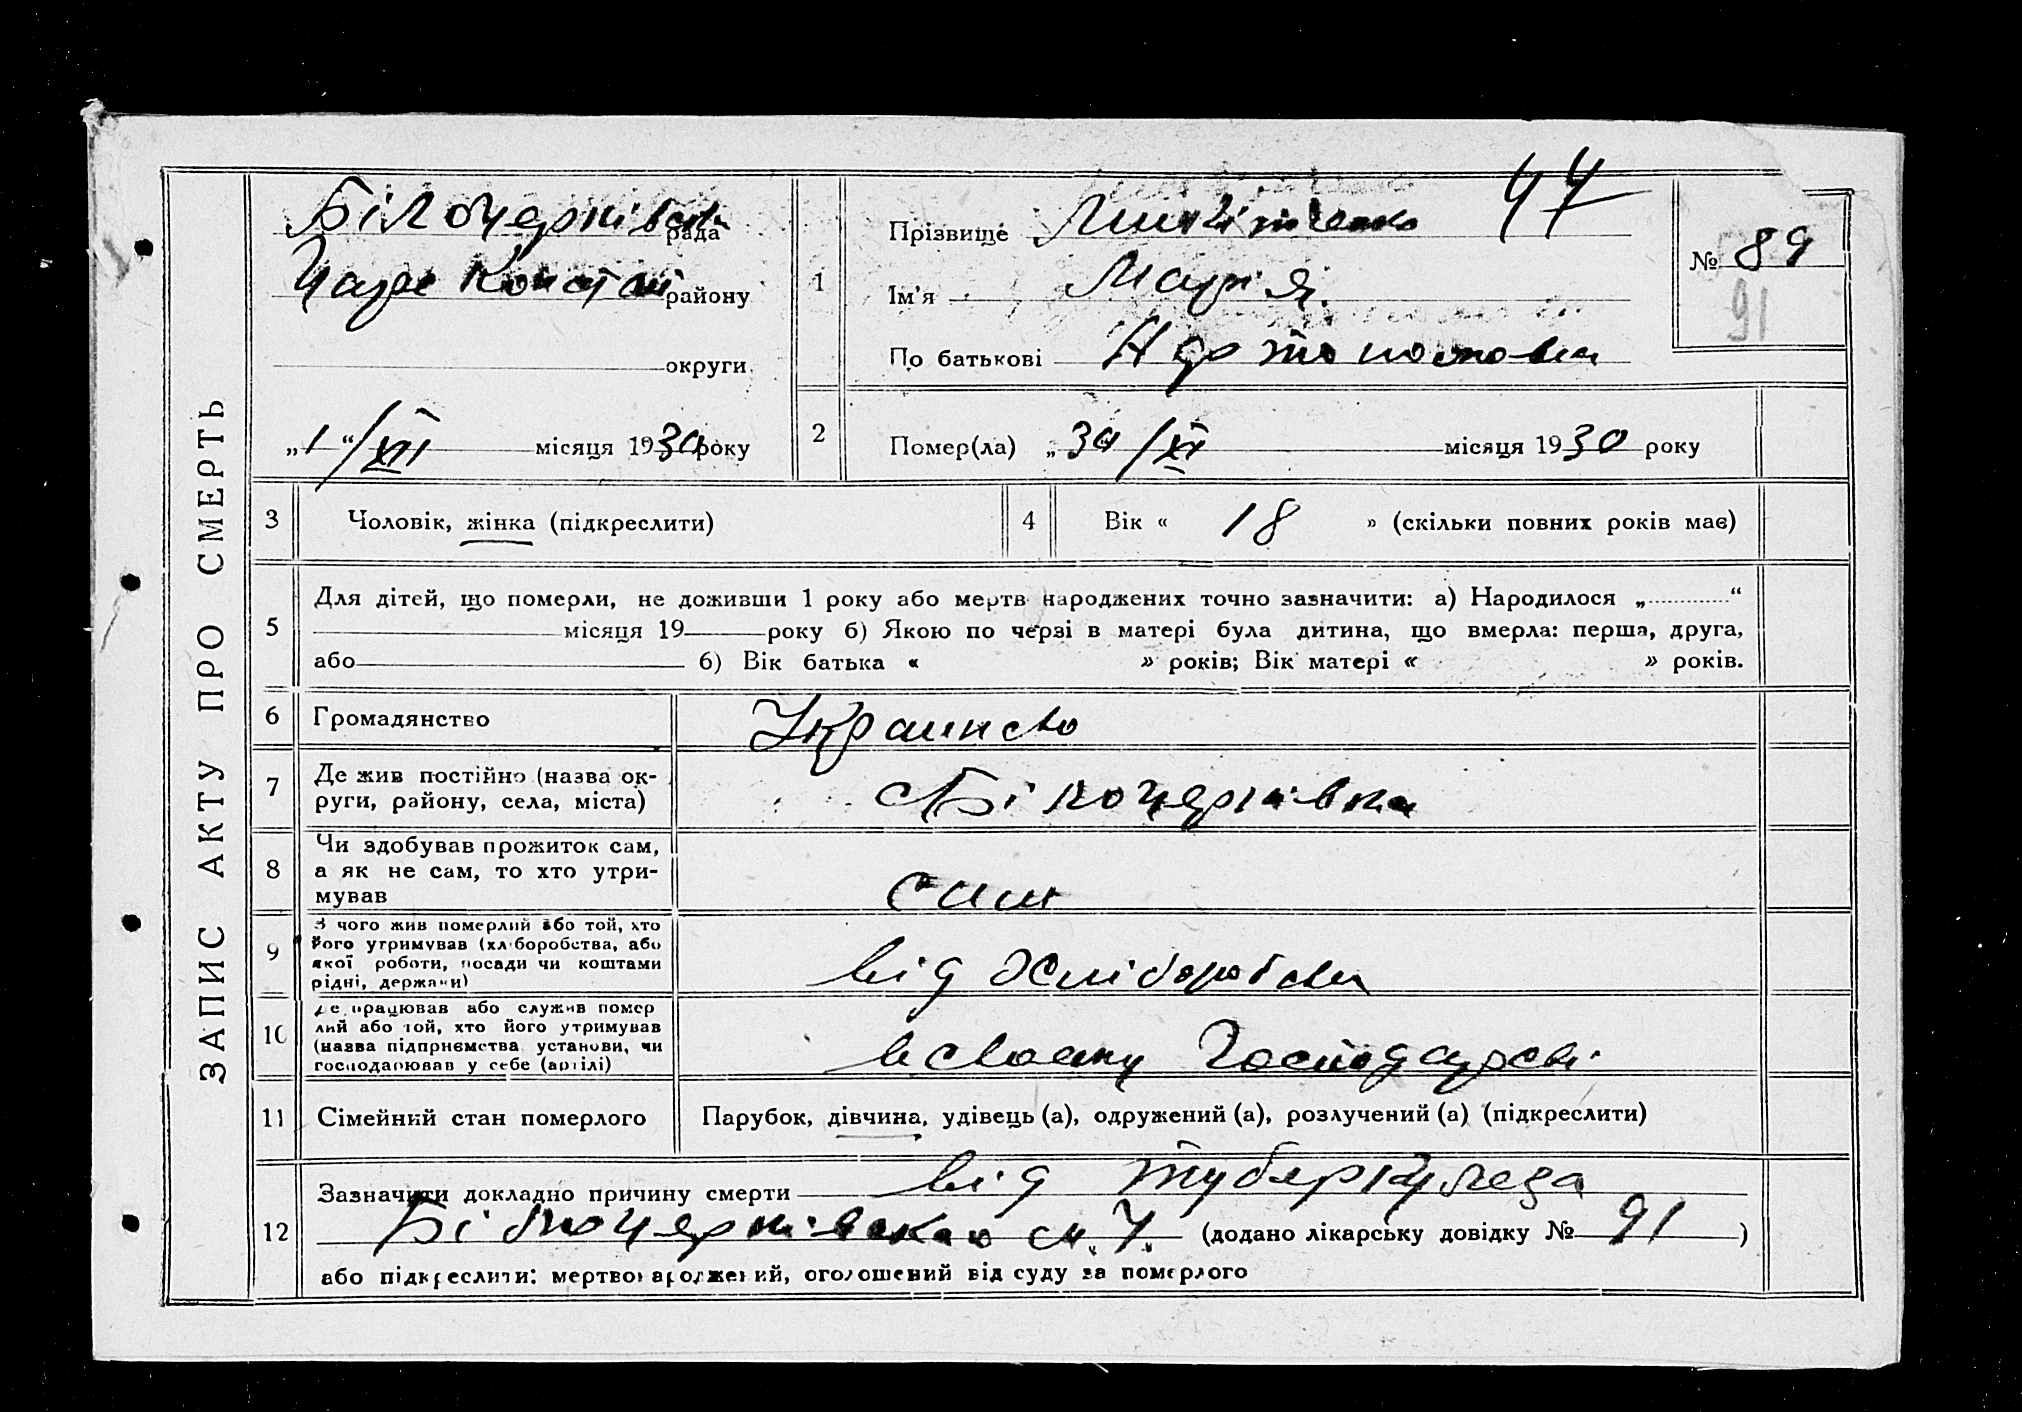 ЗАПИС АКТУ ПРО СМЕРТЬ
Білочерківська рада
Чапо Конст району
округи
„1“/XII місяця 1930 року
1
Прізвище Микитченко 47
Ім'я Марія
По батькові
№ 89
91
2
Помер(ла) „30/XI місяця 1930 року
3 Чоловік, жінка (підкреслити)
4 Вік « 18 » (скільки повних років має)
5 Для дітей, що померли, не доживши 1 року або мертв народжених точно зазначити: а) Народилося „ “
місяця 19 року б) Якою по черзі в матері була дитина, що вмерла: перша, друга,
або б) Вік батька « » років; Вік матері « » років.
6 Громадянство Украинсво
7 Де жив постійно (назва ок-
руги, району, села, міста) с Білочерківка
8 Чи здобував прожиток сам,
а як не сам, то хто утри-
мував сам
9 З чого жив померлий або той, хто
його утримував (хліборобства, або
якої роботи, посади чи коштами
рідні, держави) від хліборобства
10 Де працював або служив помер
лий або той, хто його утримував
(назва підприємства установи, чи
господарював у себе (артілі) в своєму господарсві
11 Сімейний стан померлого Парубок, дівчина, удівець (а), одружений (а), розлучений (а) (підкреслити)
12 Зазначити докладно причину смерти від туберкулеза
Білочерківською м.У. (додано лікарську довідку № 91 )
або підкреслити: мертвонароджений, оголошений від суду за померлого